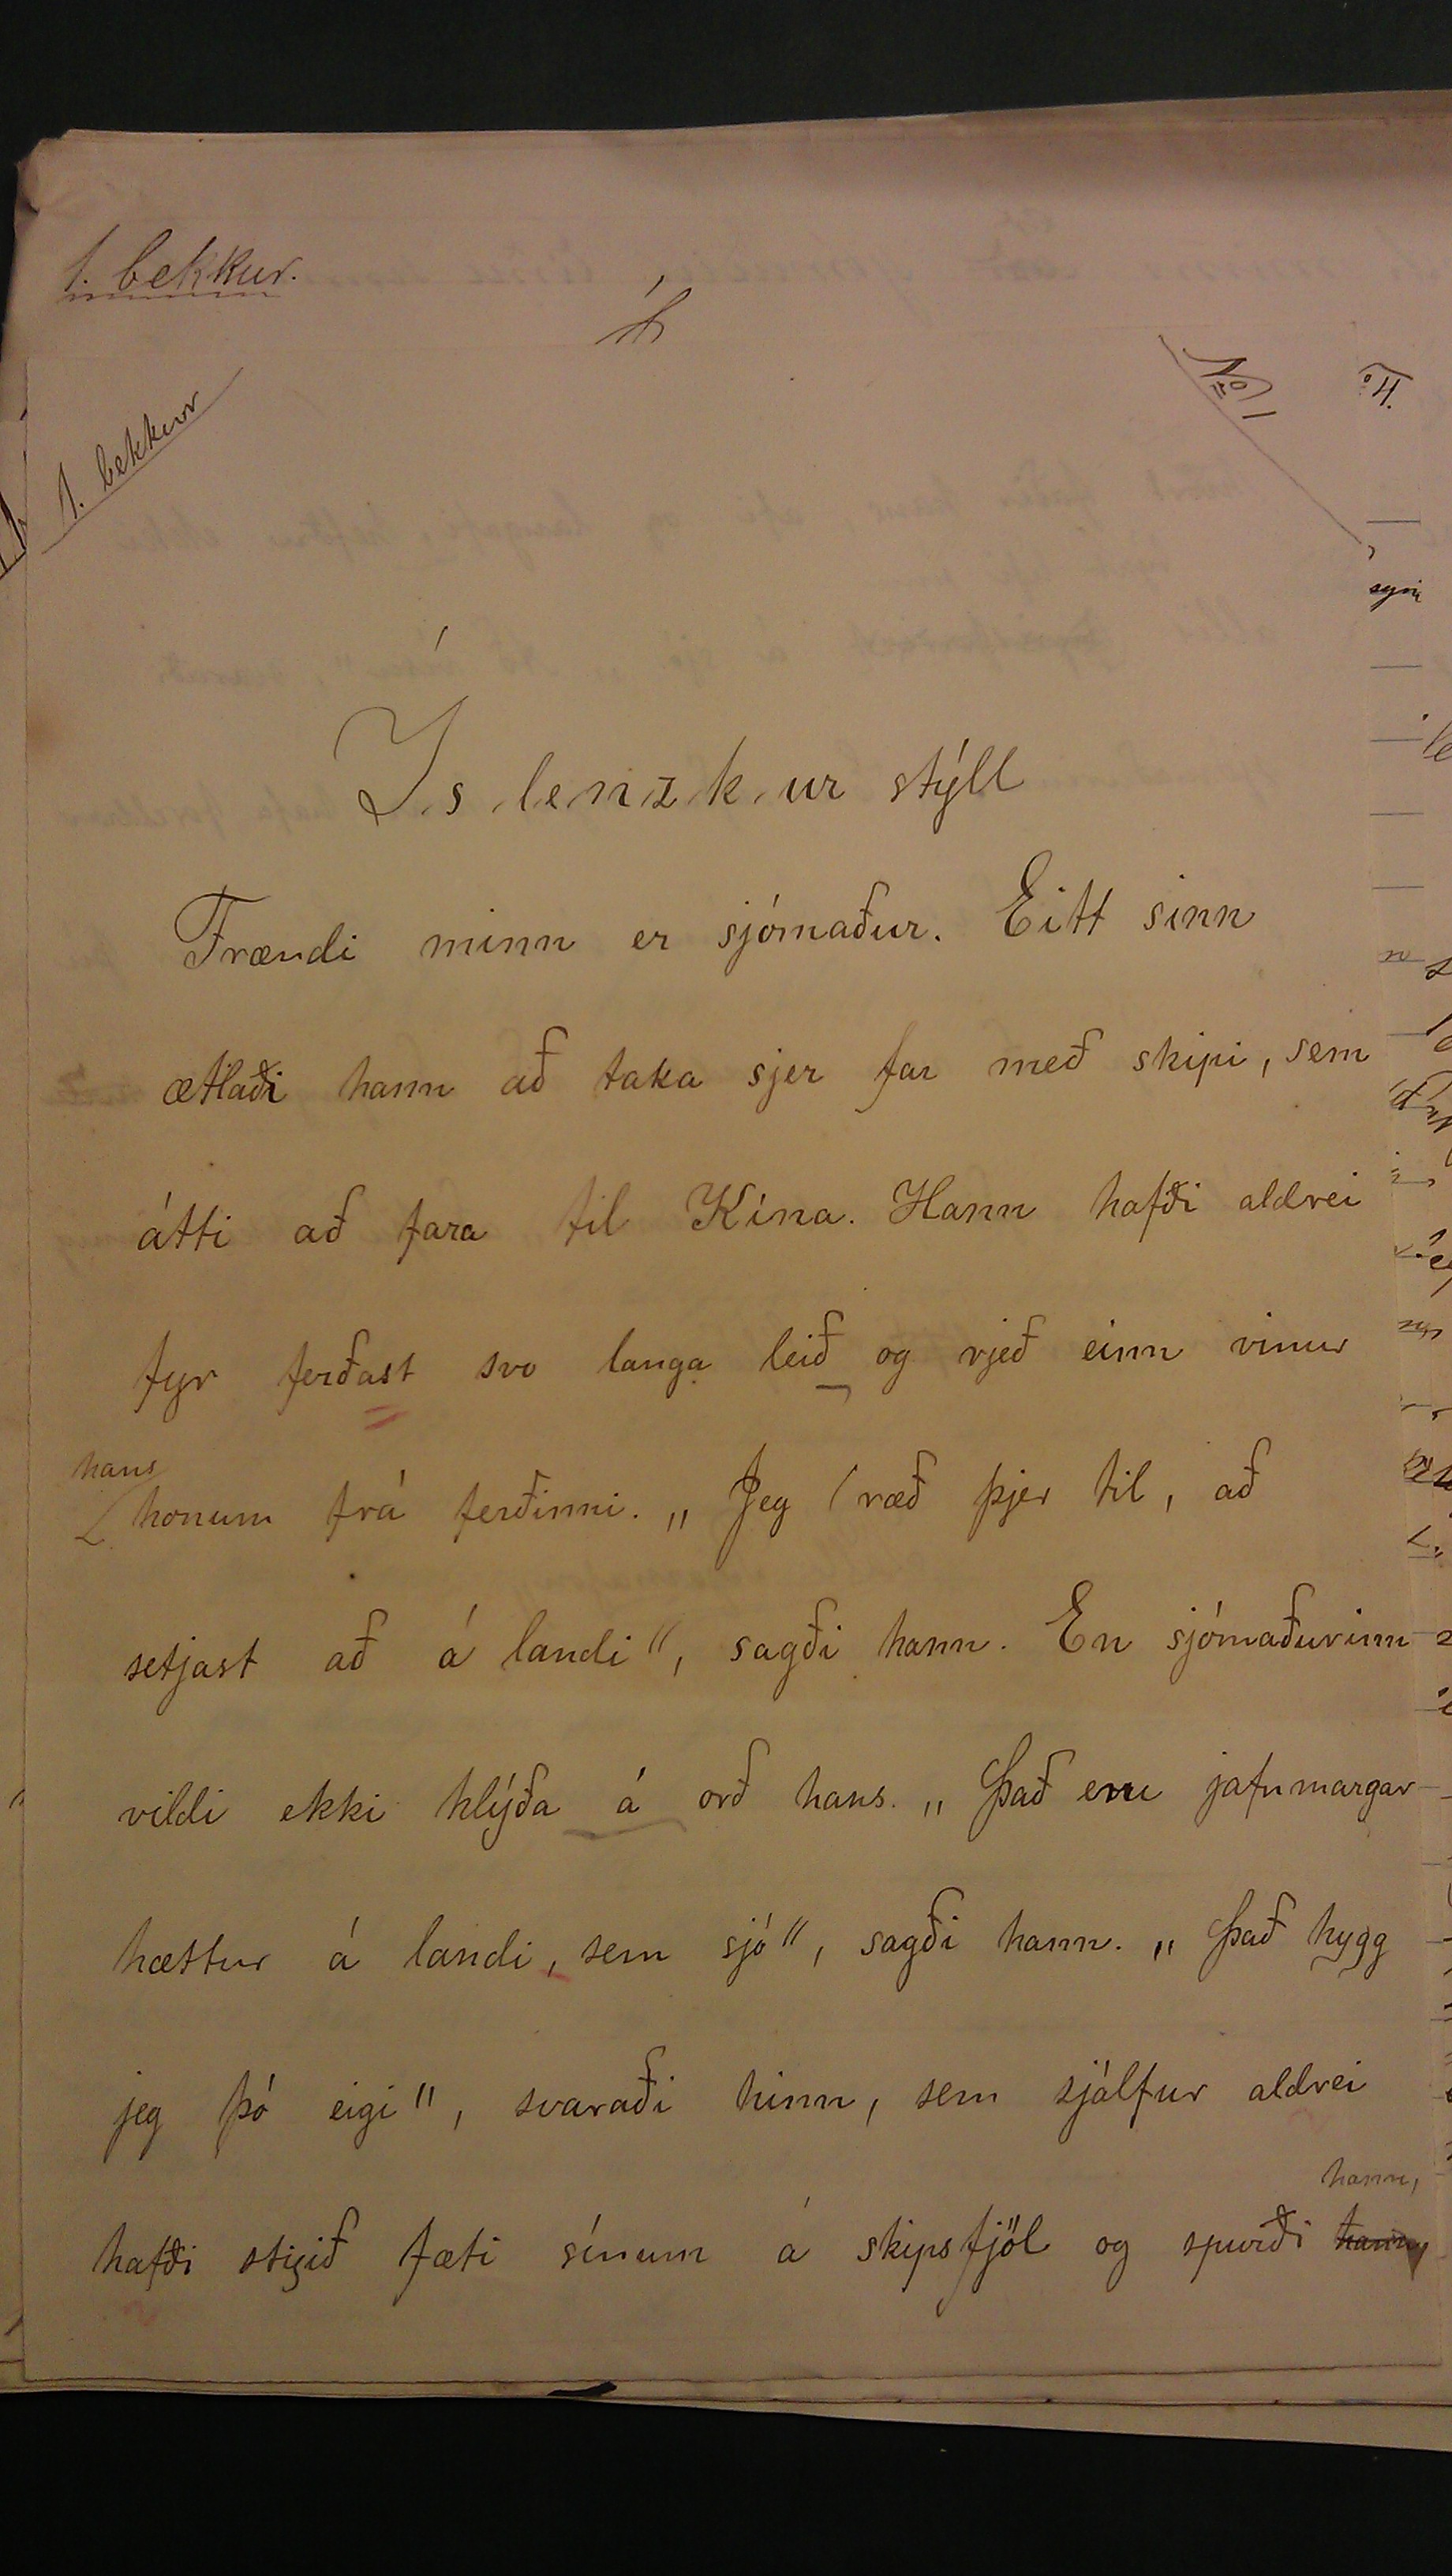 1. bekkur.
1. bekkur
No 1
Íslenzkur stýll
Frændi minn er sjómaður. Eitt sinn
ætlaði hann að taka sjer far með skipi, sem
átti að fara til Kína. Hann hafði aldrei
fyr ferðast svo langa leið og rjeð einn vinur
hans
honum frá ferðinni. „Jeg ræð þjer til, að
setjast að á landi“, sagði hann. En sjómaðurinn
vildi ekki hlýða á orð hans. „Það eru jafnmargar
hættur á landi, sem sjó“, sagði hann. „Það hygg
jeg þó eigi“, svaraði hinn, sem sjálfur aldrei
hann,
hafði stigið fæti sínum á skipsfjöl og spurði hann,